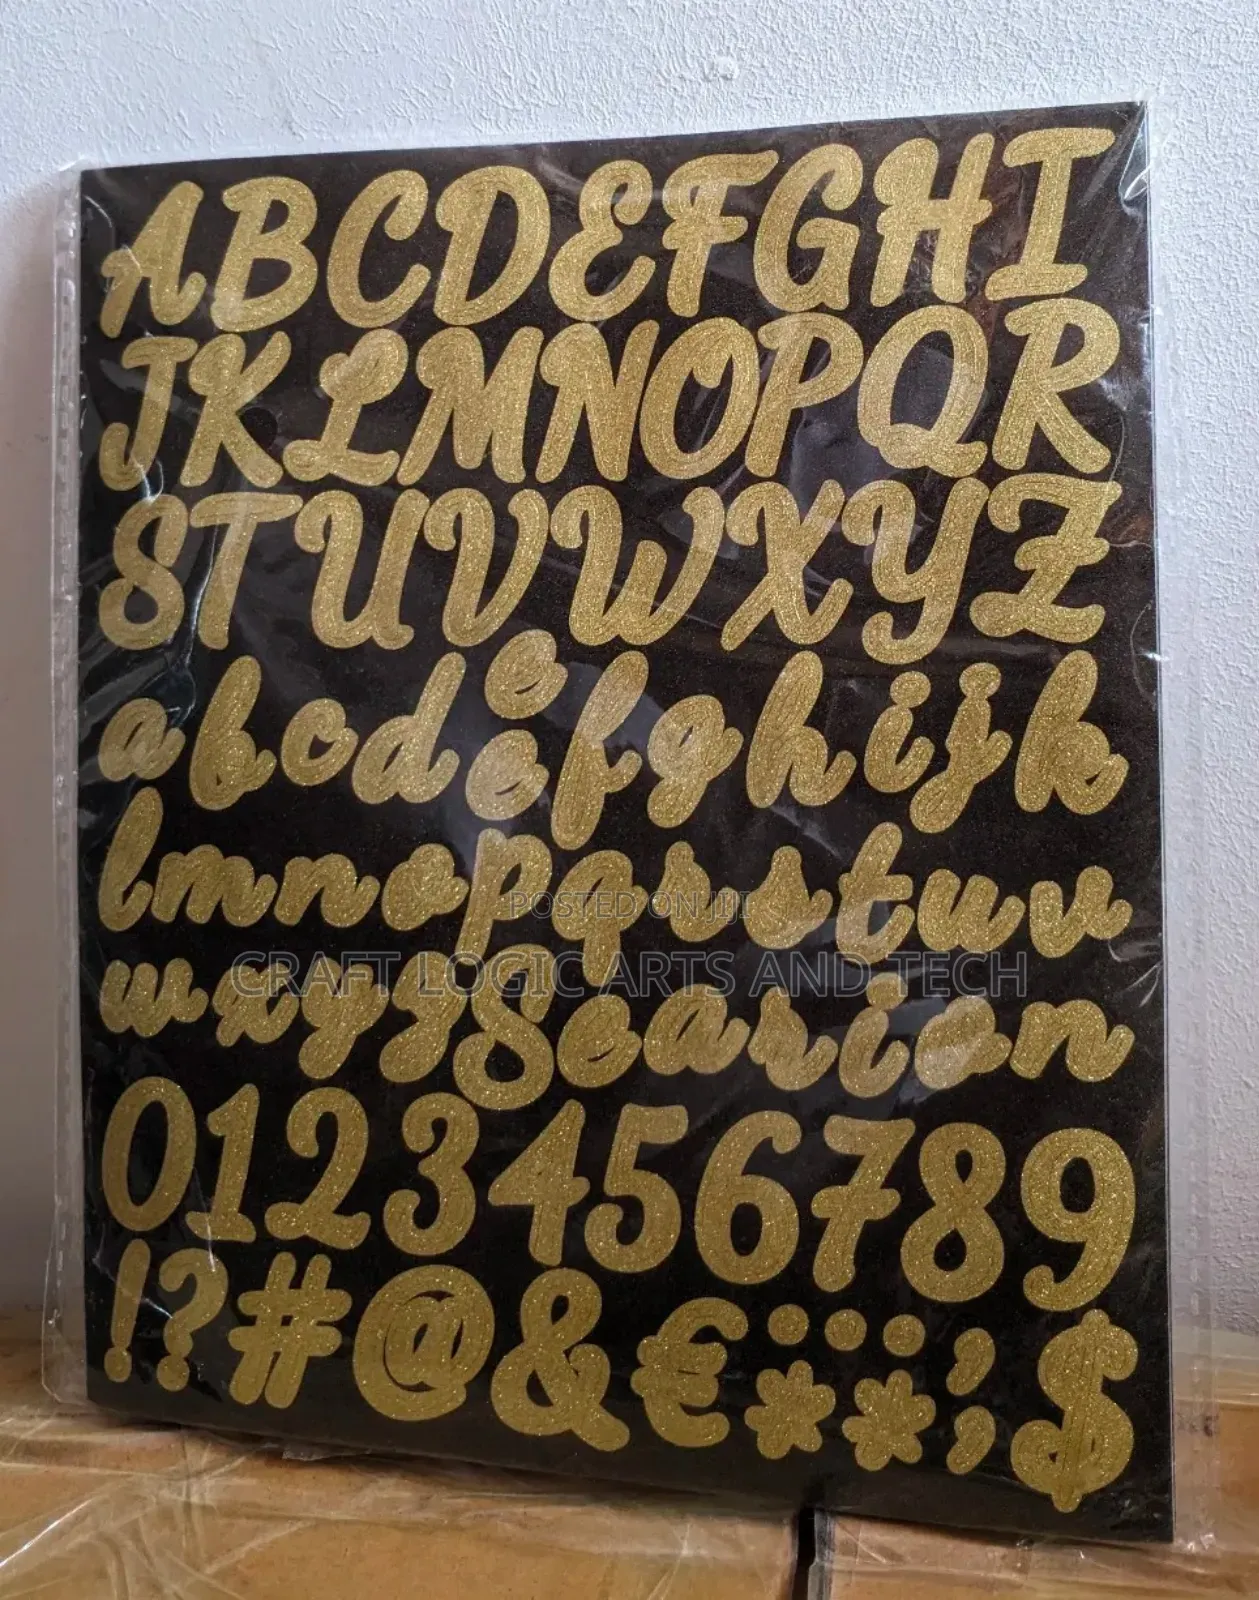 ABCDEFGHI
JKLMNOPQR
STUVWXYZ
abcdeefghijk
lmnopqrstuv
wxyySearion
0123456789
!?#@&€...**,,$
POSTED ON JIJI
CRAFT LOGIC ARTS AND TECH